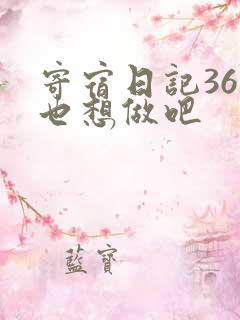 寄宿日記36
也想做吧
藍寶